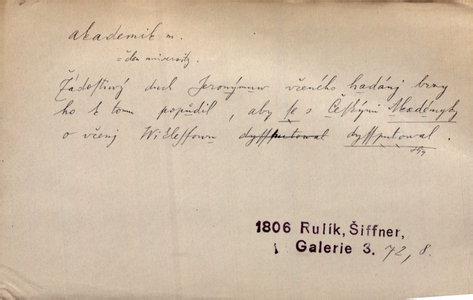 akademik m.
= člen university.
Žádostivý duch Jeronýmuw včeného hadánj brzy
ho k tomu popudil, aby se s Českými Akadémyky
o včenj Wiklefowu dysputowal dyssputowal.
1806 Rulík, Šiffner,
Galerie 3. 72, 8.